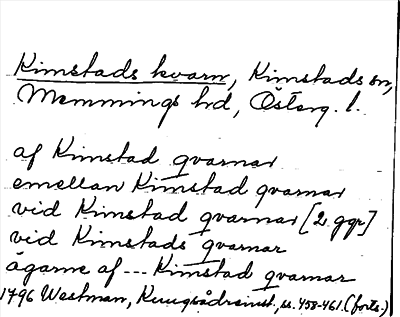 Kimstads kvarn, Kimstads sn,
Memmings hd, Österg. l.
af Kimstad qvarnar
emellan Kimstad qvarnar
vid Kimstad qvarnar [2 ggr]
vid Kimstads qvarnar
ägarne af --- Kimstad qvarnar
1796 Westman, ss. 458-461. (forts.)